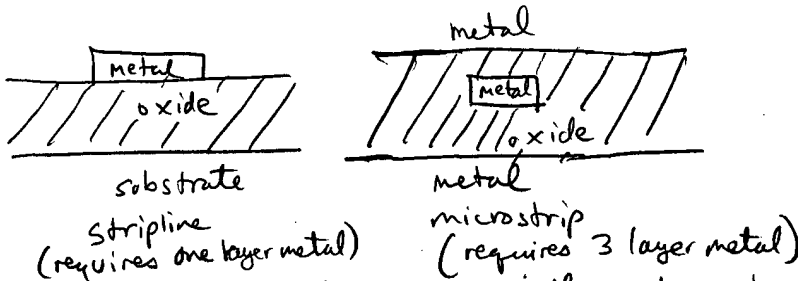 metal
oxide
substrate
stripline
(requires one layer metal)
metal
metal
oxide
metal
microstrip
(requires 3 layer metal)